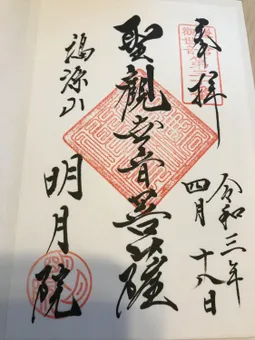 奉拝
令和三年
四月
十八日
聖観世音菩薩
福源山
明月院